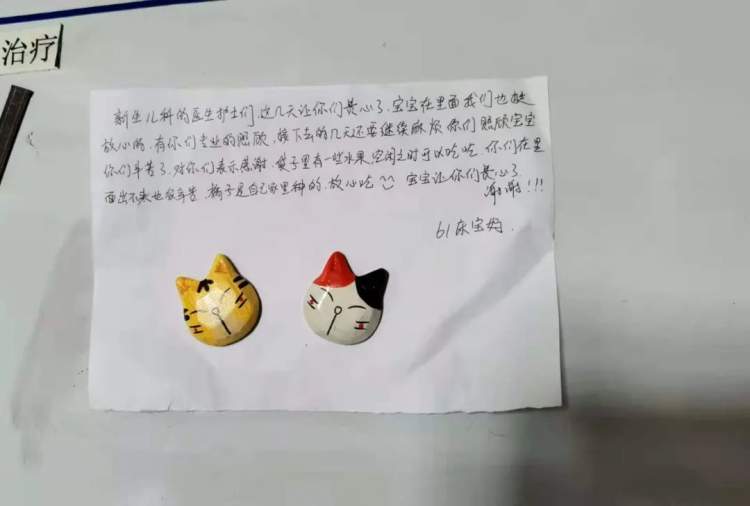 治疗
新生儿科的医生护士们,这几天让你们费心了,宝宝在里面我们也挺
放心的,有你们专业的照顾,接下去的几天还要继续麻烦你们照顾宝宝
你们辛苦了,对你们表示感谢,袋子里有一些水果,空闲之时可以吃吃,你们在里
面出不来也很辛苦,橘子是自己家里种的,放心吃 宝宝让你们费心了
谢谢!!!
61床宝妈.